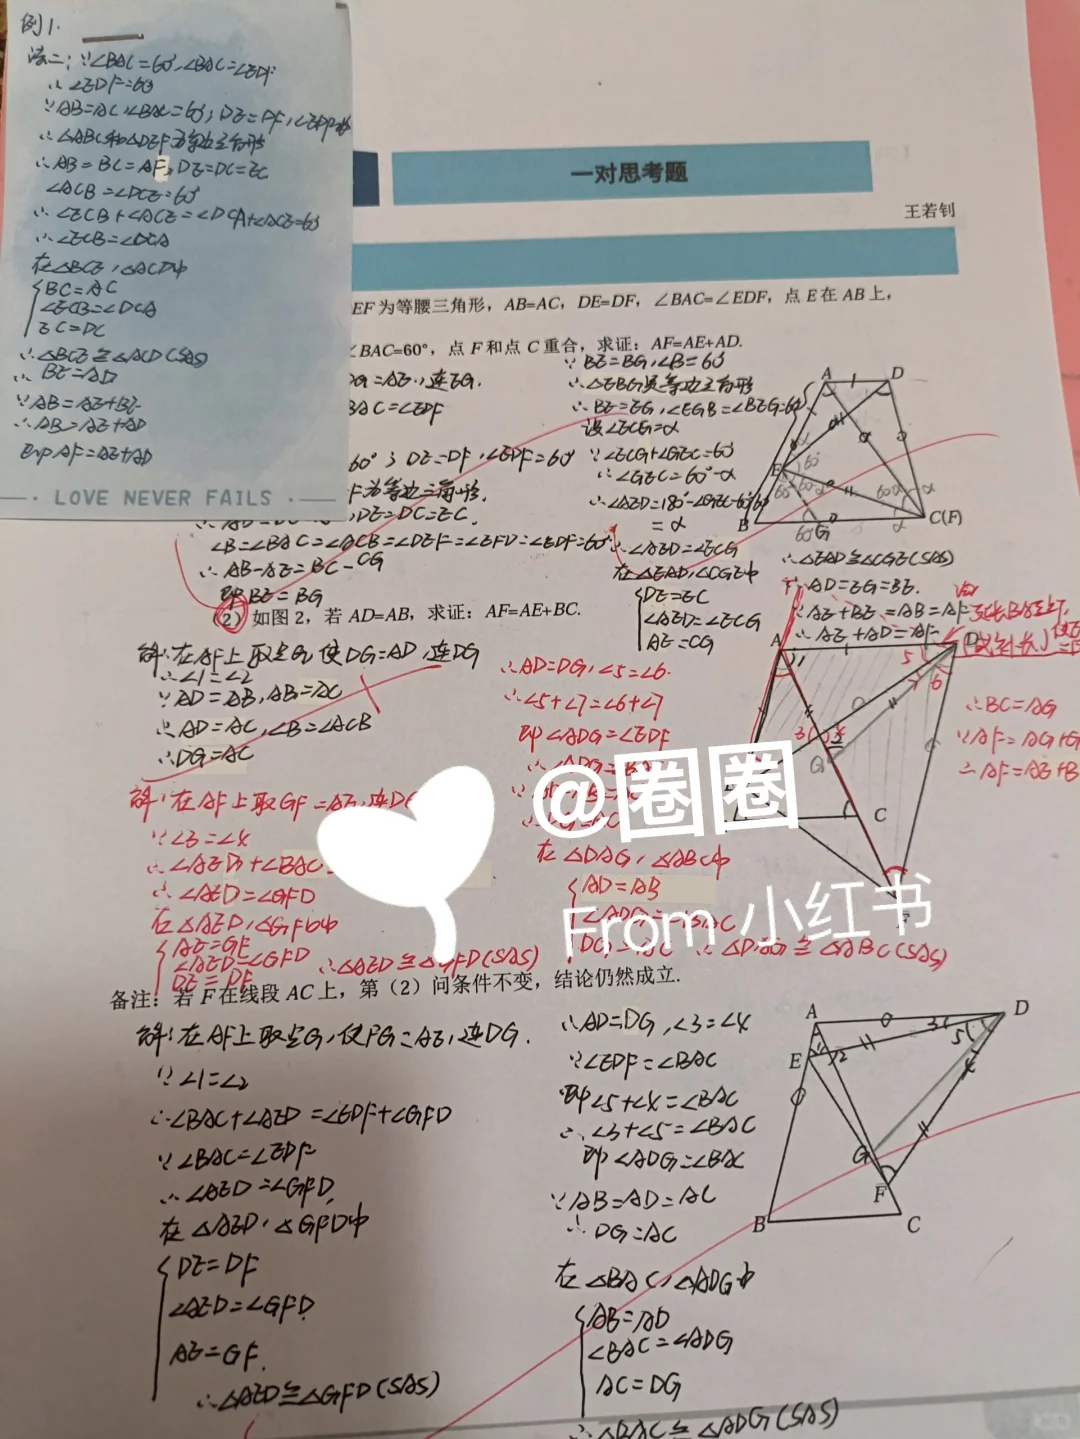 例1.
法二：∵∠BAC=60°,∠BAC=∠EDF
∴∠EDF=60°
∵AB=AC,∠BAC=60°,DE=DF,∠EDF=60°
∴△ABC和△DEF为等边三角形
∴AB=BC=AF,DE=DC=EC
∠ACB=∠DCE=60°
∴∠ECB+∠ACE=∠DCA+∠ACE=60°
∴∠ECB=∠DCA
在△BCE,△ACD中
BC=AC
∠ECB=∠DCA
EC=DC
∴△BCE≌△ACD(SAS)
∴BE=AD
∵AB=AE+BE
∴AB=AE+AD
即AF=AE+AD
LOVE NEVER FAILS
一对思考题
王若钊
EF为等腰三角形，AB=AC，DE=DF，∠BAC=∠EDF，点E在AB上，
∠BAC=60°，点F和点C重合，求证：AF=AE+AD.
=AE,连EG.
BAC=∠EDF
60°,DE=DF,∠EDF=60°
F为等边三角形.
,DE=DC=EC.
∠B=∠BAC=∠ACB=∠DEF=∠EFD=∠EDF=60°
∴AB-AE=BC-CG
即BE=BG
∵BE=BG,∠B=60°
∴△EBG是等边三角形
∴BE=EG,∠EGB=∠BEG=60°
设∠ECG=α
∵∠ECG+∠GEC=60°
∴∠GEC=60°-α
∴∠AED=180°-∠GEC-60°-60°
=α
∴∠AED=∠ECG
在△EAD,△CGE中
DE=EC
∠AED=∠ECG
AE=CG
A
D
E
B
G
C(F)
∴△EAD≌△CGE(SAS)
∴AD=EG=BE.
∵AE+BE=AB=AF
∴AE+AD=AF
（2）如图2，若AD=AB，求证：AF=AE+BC.
解:在AF上取点G,使DG=AD,连DG
∴∠1=∠2
∵AD=AB,AB=AC
∴AD=AC,∠B=∠ACB
∴DG=AC
解:在AF上取GF=AE,连DG
∵∠3=∠4
∴∠AED+∠BAC
∴∠AED=∠GFD
在△AED,△GFD中
AE=GF
∠AED=∠GFD
DE=DF
∴△AED≌△GFD(SAS)
∴AD=DG,∠5=∠6.
∴∠5+∠7=∠6+∠7
即∠ADG=∠EDF
∴DG=AC
在△DAG,△ABC中
AD=AB
∠ADG=∠BAC
DG=AC
∴△DAG≌△ABC(SAS)
∴BC=AG
∵AF=AG+G
∴AF=AE+B
A
D
G
C
F
@圈圈
From 小红书
备注：若F在线段AC上，第（2）问条件不变，结论仍然成立.
解:在AF上取点G,使FG=AE,连DG.
∵∠1=∠2
∴∠BAC+∠AED=∠EDF+∠GFD
∵∠BAC=∠EDF
∴∠AED=∠GFD
在△AED,△GFD中
DE=DF
∠AED=∠GFD
AE=GF.
∴△AED≌△GFD(SAS)
∴AD=DG,∠3=∠4
∵∠EDF=∠BAC
即∠5+∠4=∠BAC
∴∠3+∠5=∠BAC
即∠ADG=∠BAC
∵AB=AD=AC
∴DG=AC
在△BAC,△ADG中
AB=AD
∠BAC=∠ADG
AC=DG
∴△BAC≌△ADG(SAS)
A
D
E
G
F
B
C